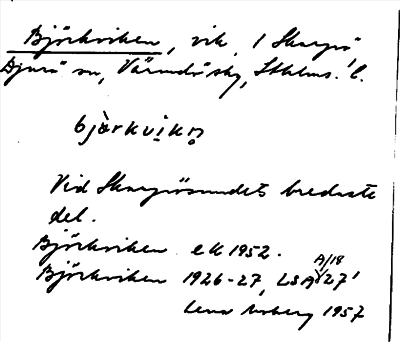 Björkviken, vik, 1 Skarprö
Djurö sn, Värmdö skg, Sthlms. l.
bjòrkvikn
Vid Skarprösundets bredaste
del.
Björkviken ek 1952.
Björkviken 1926-27, LSA A/18 27'
Lena 1957